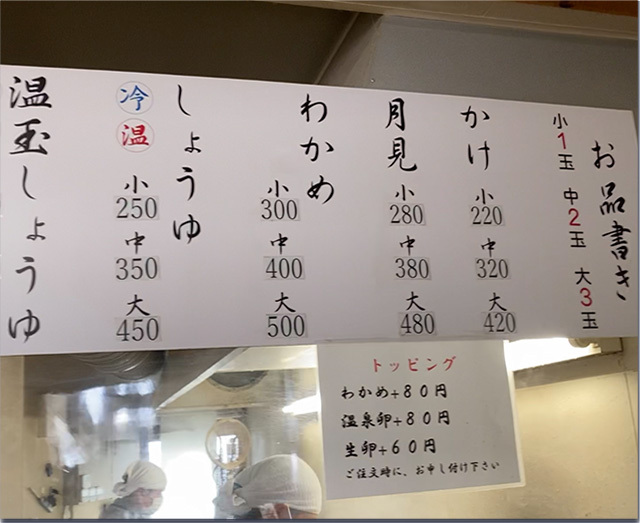 お品書き
小1玉 中2玉 大3玉
かけ
小
220
中
320
大
420
月見
小
280
中
380
大
480
わかめ
小
300
中
400
大
500
しょうゆ
冷
温
小
250
中
350
大
450
温玉しょうゆ
トッピング
わかめ+80円
温泉卵+80円
生卵+60円
ご注文時に、お申し付け下さい